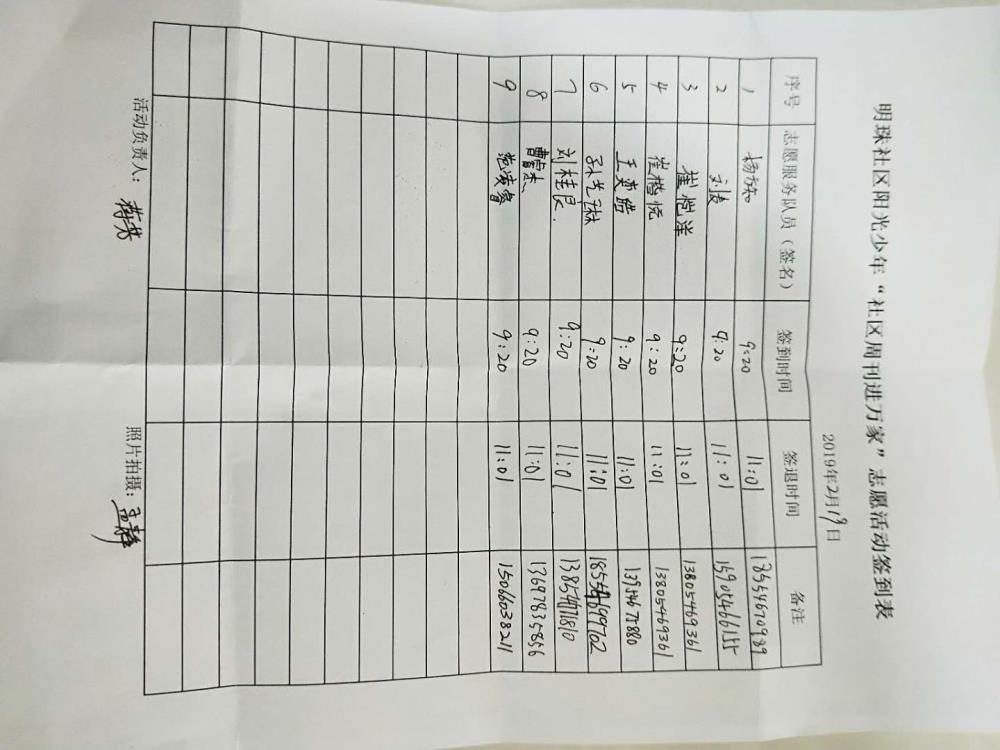 明珠社区阳光少年“社区周刊进万家”志愿活动签到表
2019年2月19日
序号 志愿服务队员（签名） 签到时间 签退时间 备注
1 杨方知 9:20 11:01 18554670989
2 刘袁 9:20 11:01 15905466155
3 崔悦洋 9:20 11:01 13805469361
4 崔楷悦 9:20 11:01 13805469361
5 王奕皓 9:20 11:01 13954675880
6 9:20 11:01
7 刘桂良 9:20 11:01
8 曹智杰 9:20 11:01 13697835856
9 范凌睿 9:20 11:01 15066038211
活动负责人： 照片拍摄：孟静